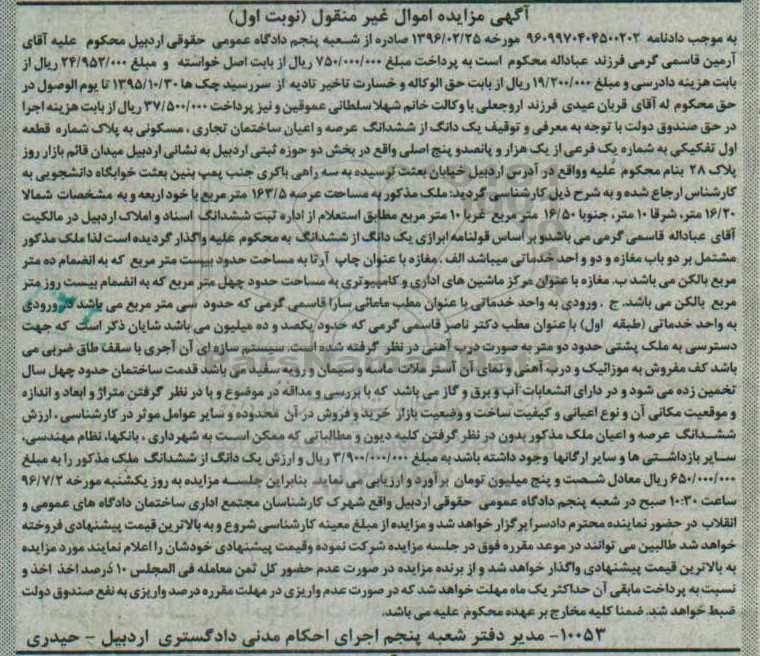 آگهی مزایده اموال غیر منقول (نوبت اول)
به موجب دادنامه ۹۶۰۹۹۷۰۴۰۴۵۰۰۲۰۲ مورخه ۱۳۹۶/۰۲/۲۵ صادره از شعبه پنجم دادگاه عمومی حقوقی اردبیل محکوم علیه آقای
آرمین قاسمی گرمی فرزند عباداله محکوم است به پرداخت مبلغ ۷۵۰/۰۰۰/۰۰۰ ریال از بابت اصل خواسته و مبلغ ۲۴/۹۵۲/۰۰۰ ریال از
بابت هزینه دادرسی و مبلغ ۱۹/۲۰۰/۰۰۰ ریال از بابت حق الوکاله و خسارت تاخیر تادیه از سررسید چک ها ۱۳۹۵/۱۰/۳۰ تا یوم الوصول در
حق محکوم له آقای قربان عیدی فرزند اروجعلی با وکالت خانم شهلا سلطانی عموقین و نیز پرداخت ۳۷/۵۰۰/۰۰۰ ریال از بابت هزینه اجرا
در حق صندوق دولت با توجه به معرفی و توقیف یک دانگ از ششدانگ عرصه و اعیان ساختمان تجاری ، مسکونی به پلاک شماره قطعه
اول تفکیکی به شماره یک فرعی از یک هزار و پانصدو پنج اصلی واقع در بخش دو حوزه ثبتی اردبیل به نشانی اردبیل میدان قائم بازار روز
پلاک ۲۸ بنام محکوم علیه وواقع در آدرس اردبیل خیابان بعثت نرسیده به سه راهی باکری جنب پمپ بنین بعثت خوابگاه دانشجویی به
کارشناس ارجاع شده و به شرح ذیل کارشناسی گردید: ملک مذکور به مساحت عرصه ۱۶۳/۵ متر مربع با خود اربعه و به مشخصات شمالا
۱۶/۲۰ متر، شرقا ۱۰ متر، جنوبا ۱۶/۵۰ متر مربع غربا ۱۰ متر مربع مطابق استعلام از اداره ثبت ششدانگ اسناد و املاک اردبیل در مالکیت
آقای عباداله قاسمی گرمی می باشدو بر اساس قولنامه ابرازی یک دانگ از ششدانگ به محکوم علیه واگذار گردیده است لذا ملک مذکور
مشتمل بر دو باب مغازه و دو واحد خدماتی میباشد الف . مغازه با عنوان چاپ آرتا به مساحت حدود بیست متر مربع که به انضمام ده متر
مربع بالکن می باشد ب. مغازه با عنوان مرکز ماشین های اداری و کامپیوتری به مساحت حدود چهل متر مربع که به انضمام بیست روز متر
مربع بالکن می باشد. ج . ورودی به واحد خدماتی با عنوان مطب مامائی سارا قاسمی گرمی که حدود سی متر مربع می باشد د. ورودی
به واحد خدماتی (طبقه اول) با عنوان مطب دکتر ناصر قاسمی گرمی که حدود یکصد و ده میلیون می باشد شایان ذکر است که جهت
دسترسی به ملک پشتی حدود دو متر به صورت درب آهنی در نظر گرفته شده است. سیستم سازه ای آن آجری با سقف طاق ضربی می
باشد کف مفروش به موزائیک و درب آهنی و نمای آن آستر ملات ماسه و سیمان و رویه سفید می باشد قدمت ساختمان حدود چهل سال
تخمین زده می شود و در دارای انشعابات آب و برق و گاز می باشد که با بررسی و مداقه در موضوع و با در نظر گرفتن متراژ و ابعاد و اندازه
و موقعیت مکانی آن و نوع اعیانی و کیفیت ساخت و وضعیت بازار خرید و فروش در آن محدوده و سایر عوامل موثر در کارشناسی ، ارزش
ششدانگ عرصه و اعیان ملک مذکور بدون در نظر گرفتن کلیه دیون و مطالباتی که ممکن است به شهرداری ، بانکها، نظام مهندسی،
سایر بازداشتی ها و سایر ارگانها وجود داشته باشد به مبلغ ۳/۹۰۰/۰۰۰/۰۰۰ ریال و ارزش یک دانگ از ششدانگ ملک مذکور را به مبلغ
۶۵۰/۰۰۰/۰۰۰ ریال معادل شصت و پنج میلیون تومان برآورد و ارزیابی می نماید. بنابراین جلسه مزایده به روز یکشنبه مورخه ۹۶/۷/۲
ساعت ۱۰:۳۰ صبح در شعبه پنجم دادگاه عمومی حقوقی اردبیل واقع شهرک کارشناسان مجتمع اداری ساختمان دادگاه های عمومی و
انقلاب در حضور نماینده محترم دادسرا برگزار خواهد شد و مزایده از مبلغ معینه کارشناسی شروع و به بالاترین قیمت پیشنهادی فروخته
خواهد شد طالبین می توانند در موعد مقرره فوق در جلسه مزایده شرکت نموده وقیمت پیشنهادی خودشان را اعلام نمایند مورد مزایده
به بالاترین قیمت پیشنهادی واگذار خواهد شد و از برنده مزایده در صورت عدم حضور کل ثمن معامله فی المجلس ۱۰ درصد اخذ اخذ و
نسبت به پرداخت مابقی آن حداکثر یک ماه مهلت خواهد شد که در صورت عدم واریزی در مهلت مقرره درصد واریزی به نفع صندوق دولت
ضبط خواهد شد. ضمنا کلیه مخارج بر عهده محکوم علیه می باشد.
۱۰۰۵۳- مدیر دفتر شعبه پنجم اجرای احکام مدنی دادگستری اردبیل – حیدری